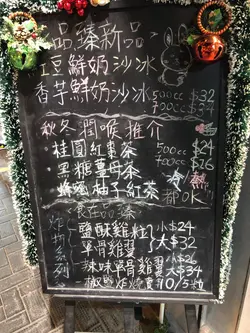 品臻新品
紅豆鮮奶沙冰
香芋鮮奶沙冰 500cc $32
700cc $34
秋冬潤喉推介
・桂圓紅棗茶 500cc $24
・黑糖薑母茶 700cc $26
・蜂蜜柚子紅茶 冷/熱都OK
食在品臻
炸物系列
・鹽酥雞粒 小$24
大$32
・單骨雞翼
・辣味單骨雞翼 小$26
大$34
・椒鹽炸燒賣 $10/5粒